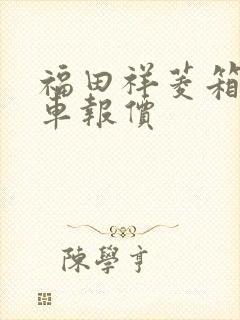 福田祥菱箱
車報價
陳學亨